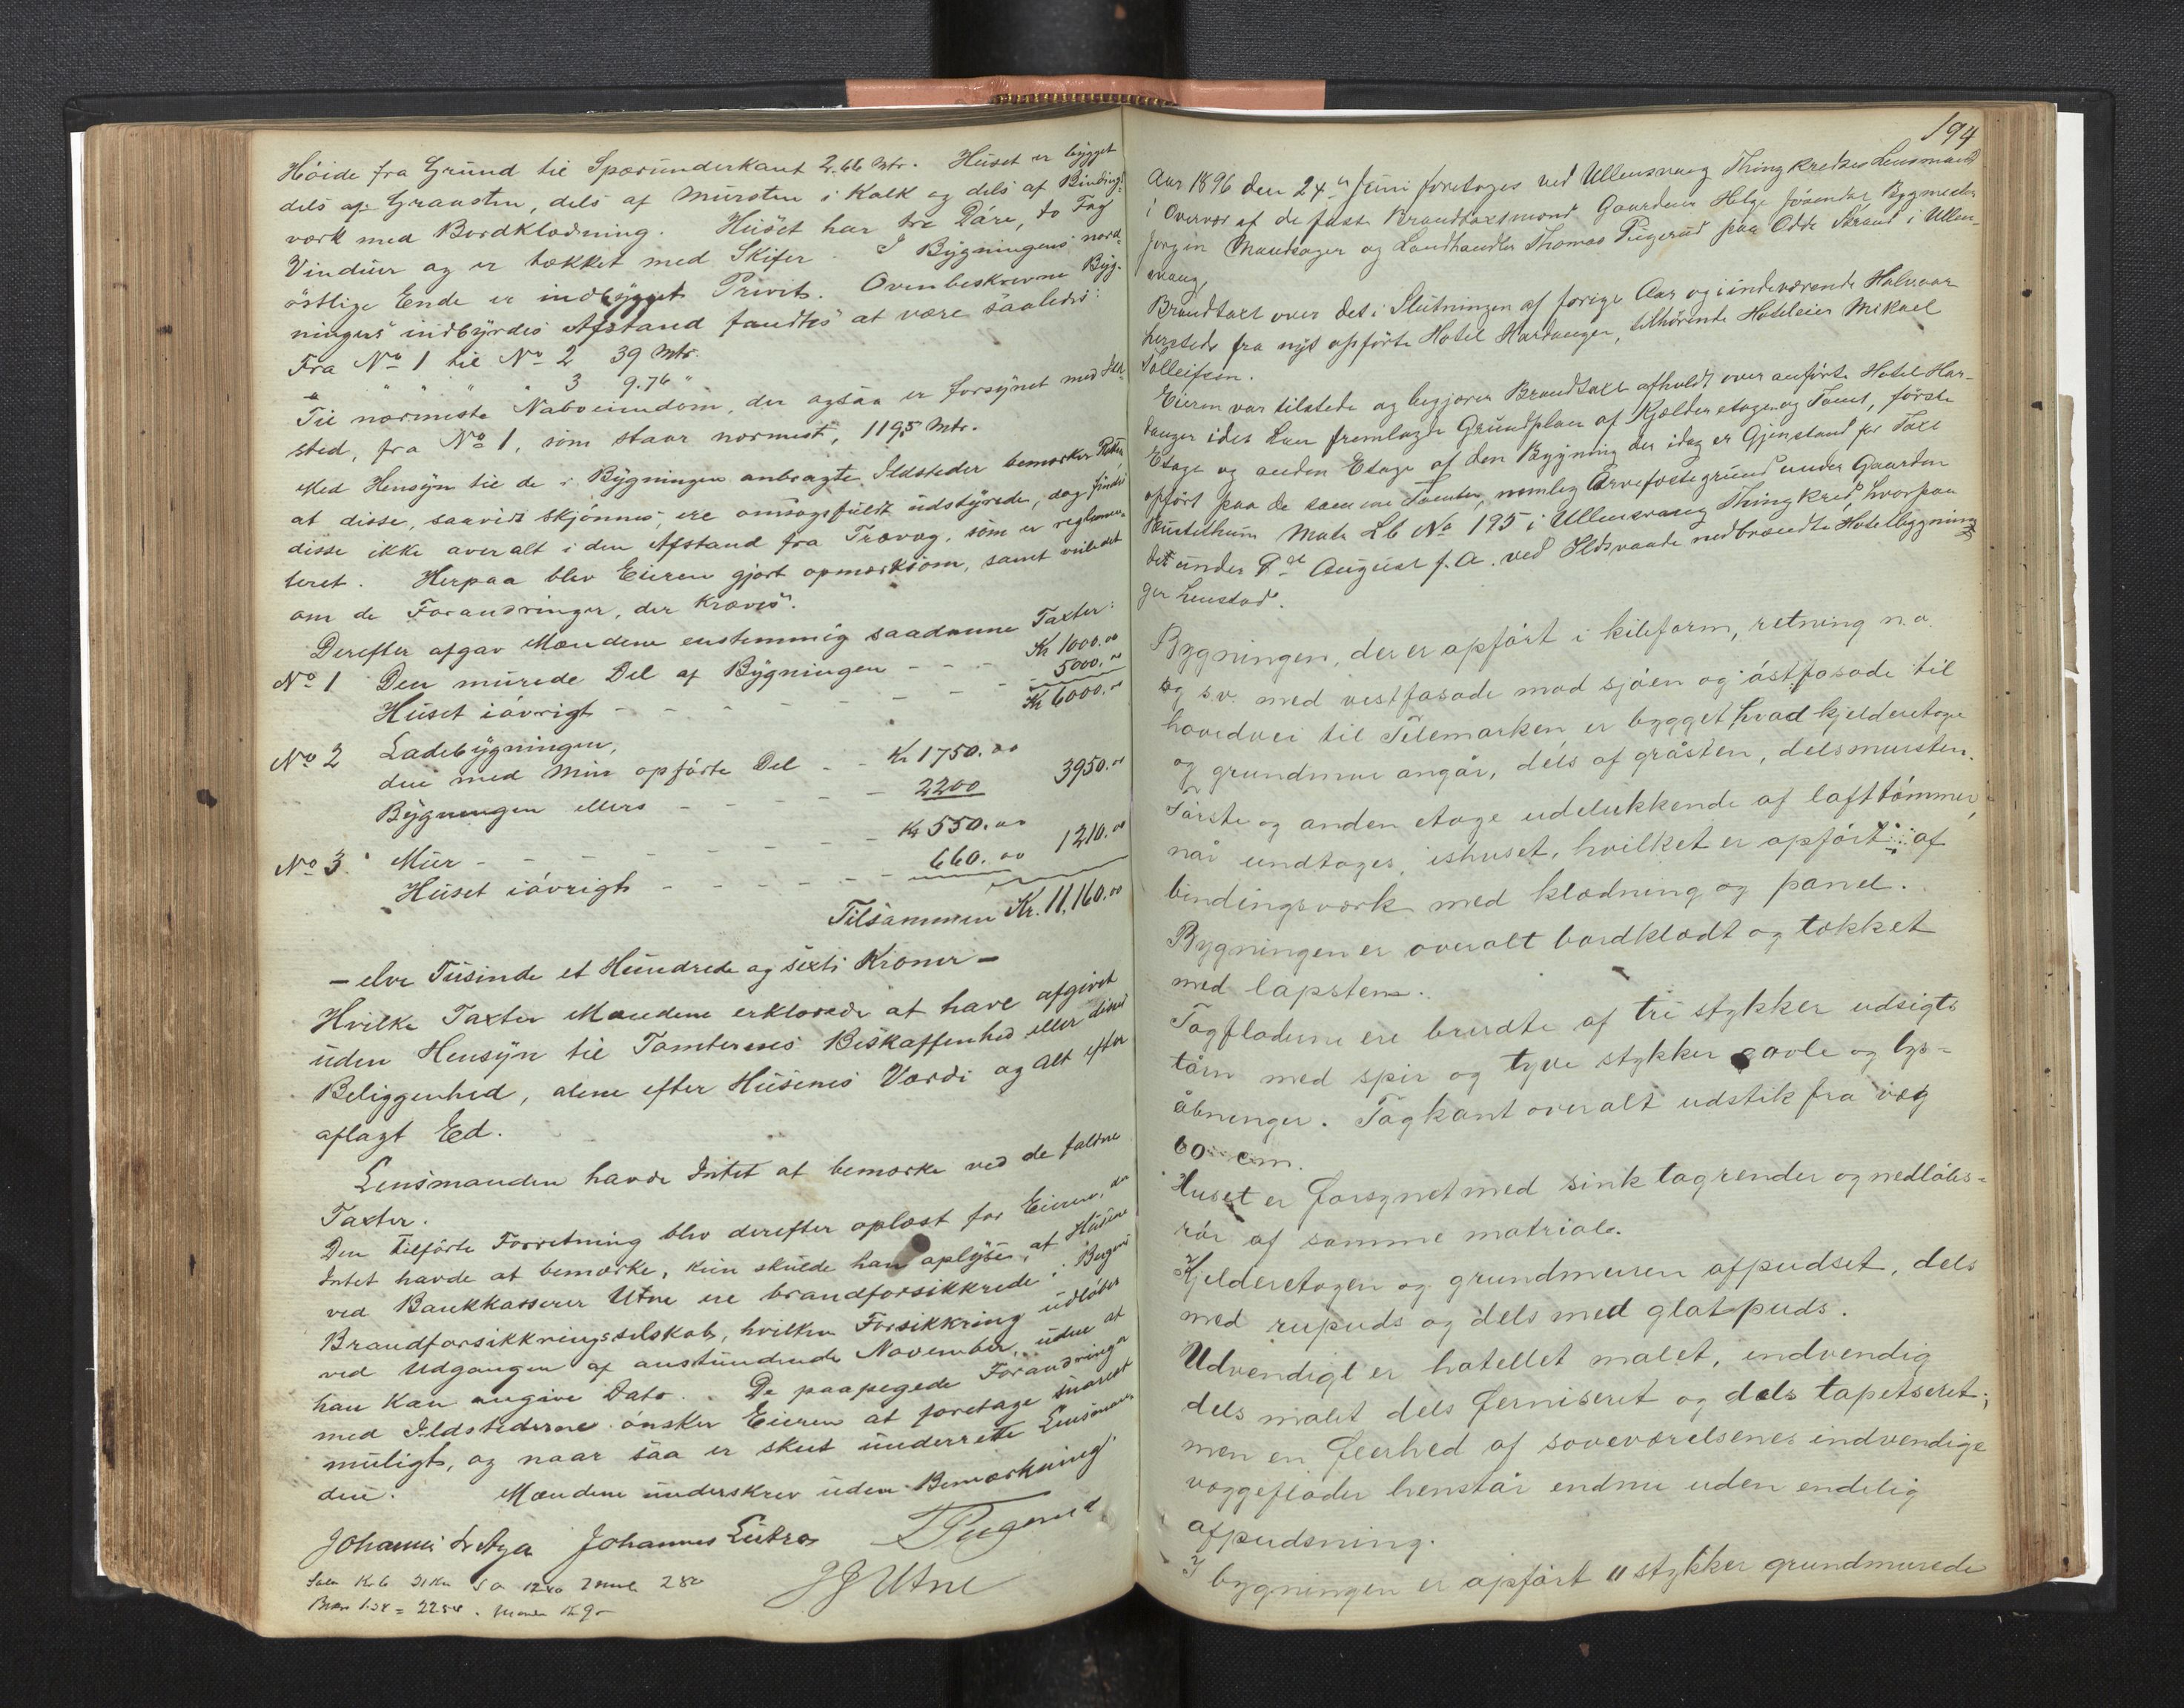 Höide fra Grund til Spærunderkant 2.66 Mtr. Huset er bygget
dels af Graasten, dels af Mursten i Kalk og dels af Bindings-
værk med Bordklædning. Huset har tre Döre, to Fag
Vinduer og er tækket med Skifer. I Bygningens nord-
östlige Ende er indbygget Privet. Ovenbeskrevne Byg-
ningers indbyrdes Afstand fandtes at være saaledes:
Fra No 1 til No 2 39 Mtr.
" " " " 3 9.76 "
Til nærmeste Naboeiendom, der ogsaa er forsynet med Ild-
sted, fra No 1, som staar nærmest, 119,5 Mtr.
Med Hensyn til de i Bygningen anbragte Ildsteder bemærker Retten
at disse, saavidt skjönnes, ere omsorgsfuldt udstyrede, dog findes
disse ikke overalt i den Afstand fra Trævæg, som er reglemen-
teret. Herpaa blev Eieren gjort opmærksom, samt veiledet
om de Forandringer, der kræves.
Derefter afgav Mændene enstemmig saadanne Taxter:
No 1 Den murede Del af Bygningen - - - Kr 1000.00
Huset iövrigt - - - - - - - 5000.00
Kr 6000.00
No 2 Ladebygningen,
den med Mur opförte Del - - Kr 1750.00
Bygningen ellers - - - - - 2200 3950.00
No 3 Mur - - - - - - - Kr 550.00
Huset iövrigt - - - - - - 660.00 1210.00
Tilsammen Kr. 11,160.00
- elve Tusinde et Hundrede og sexti Kroner -
Hvilke Taxter Mændene erklærede at have afgivet
uden Hensyn til Tomternes Beskaffenhed eller disses
Beliggenhed, alene efter Husenes Værdi og alt efter
aflagt Ed.
Lensmanden havde Intet at bemærke ved de faldne
Taxter.
Den tilförte Forretning blev derefter oplæst for Eieren, der
Intet havde at bemærke, kun skulde han oplyse, at Husene
ved Bankkasserer Utne ere brandforsikkrede i Bergens
Brandforsikkringsselskab, hvilken Forsikkring udlöber
ved Udgangen af anstundende November, uden at
han kan angive Dato. De paapegede Forandringer
med Ildstederne önsker Eieren at foretage snarest
muligt, og naar saa er skeet underrette Lensman-
den. Mændene underskrev uden Bemærkning.
Johannes L Aga Johannes Lutro T Pugerud
J J Utne
194
Aar 1896 den 24de Juni foretoges ved Ullensvang Thingkredses Lensmand
i Overvær af de faste Brandtaxtmænd Gaardeier Helge Jösendal Bygmester
Jörgen Mandsager og Landhandler Thomas Pugerud paa Odde Strand i Ullens-
vang,
Brandtaxt over det i Slutningen af forige Aar og i indeværende Halvaar
herstede fra nyt opförte Hotel Hardanger, tilhörende Hoteleier Mikael
Tolleifsen.
Eieren var tilstede og begjærer Brandtaxt afholdt over anförte Hotel Har-
danger idet han fremlagde Grundplan af Kjælderetagen og Tomt, förste
Etage og anden Etage af den Bygning der idag er Gjenstand for Taxt
opfört paa de samme Tomter, nemlig Arvefæstegrund under Gaarden
Prestelhun Matr Lb No 195 i Ullensvang Thingkreds, hvorpaa
det under 9de August f. A. ved Ildsvaade nedbrændte Hotelbygnin-
ger henstod.
Bygningen, der er opfört i kileform, retning n.o.
og s.v. med vestfasade mod sjöen og östfasade til
hovedvei til Telemarken er bygget hvad kjelderetage
og grundmur angår, dels af gråsten, dels mursten.
Förste og anden etage udelukkende af lafttömmer,
når undtages ishuset, hvilket er opfört af
bindingsverk med klædning og panel.
Bygningen er overalt bordklædt og tækket
med lapsten.
Tagfladerne ere brudte af tre stykker udsigts
tårn med spir og tyve stykker gavle og lys-
åbninger. Tagkant overalt udstik fra væg
60 cm.
Huset er forsynet med sink tagrender og nedlöbs-
rör af samme matriale.
Kjelderetagen og grundmuren afpudset, dels
med rupuds og dels med glatpuds.
Udvendigt er hotellet malet, indvendig
dels malet dels ferniseret og dels tapetseret;
men en fleerhed af soveværelsenes indvendige
væggeflader henstår endnu uden endelig
afpudsning.
I bygningen er opfört 11 stykker grundmurede